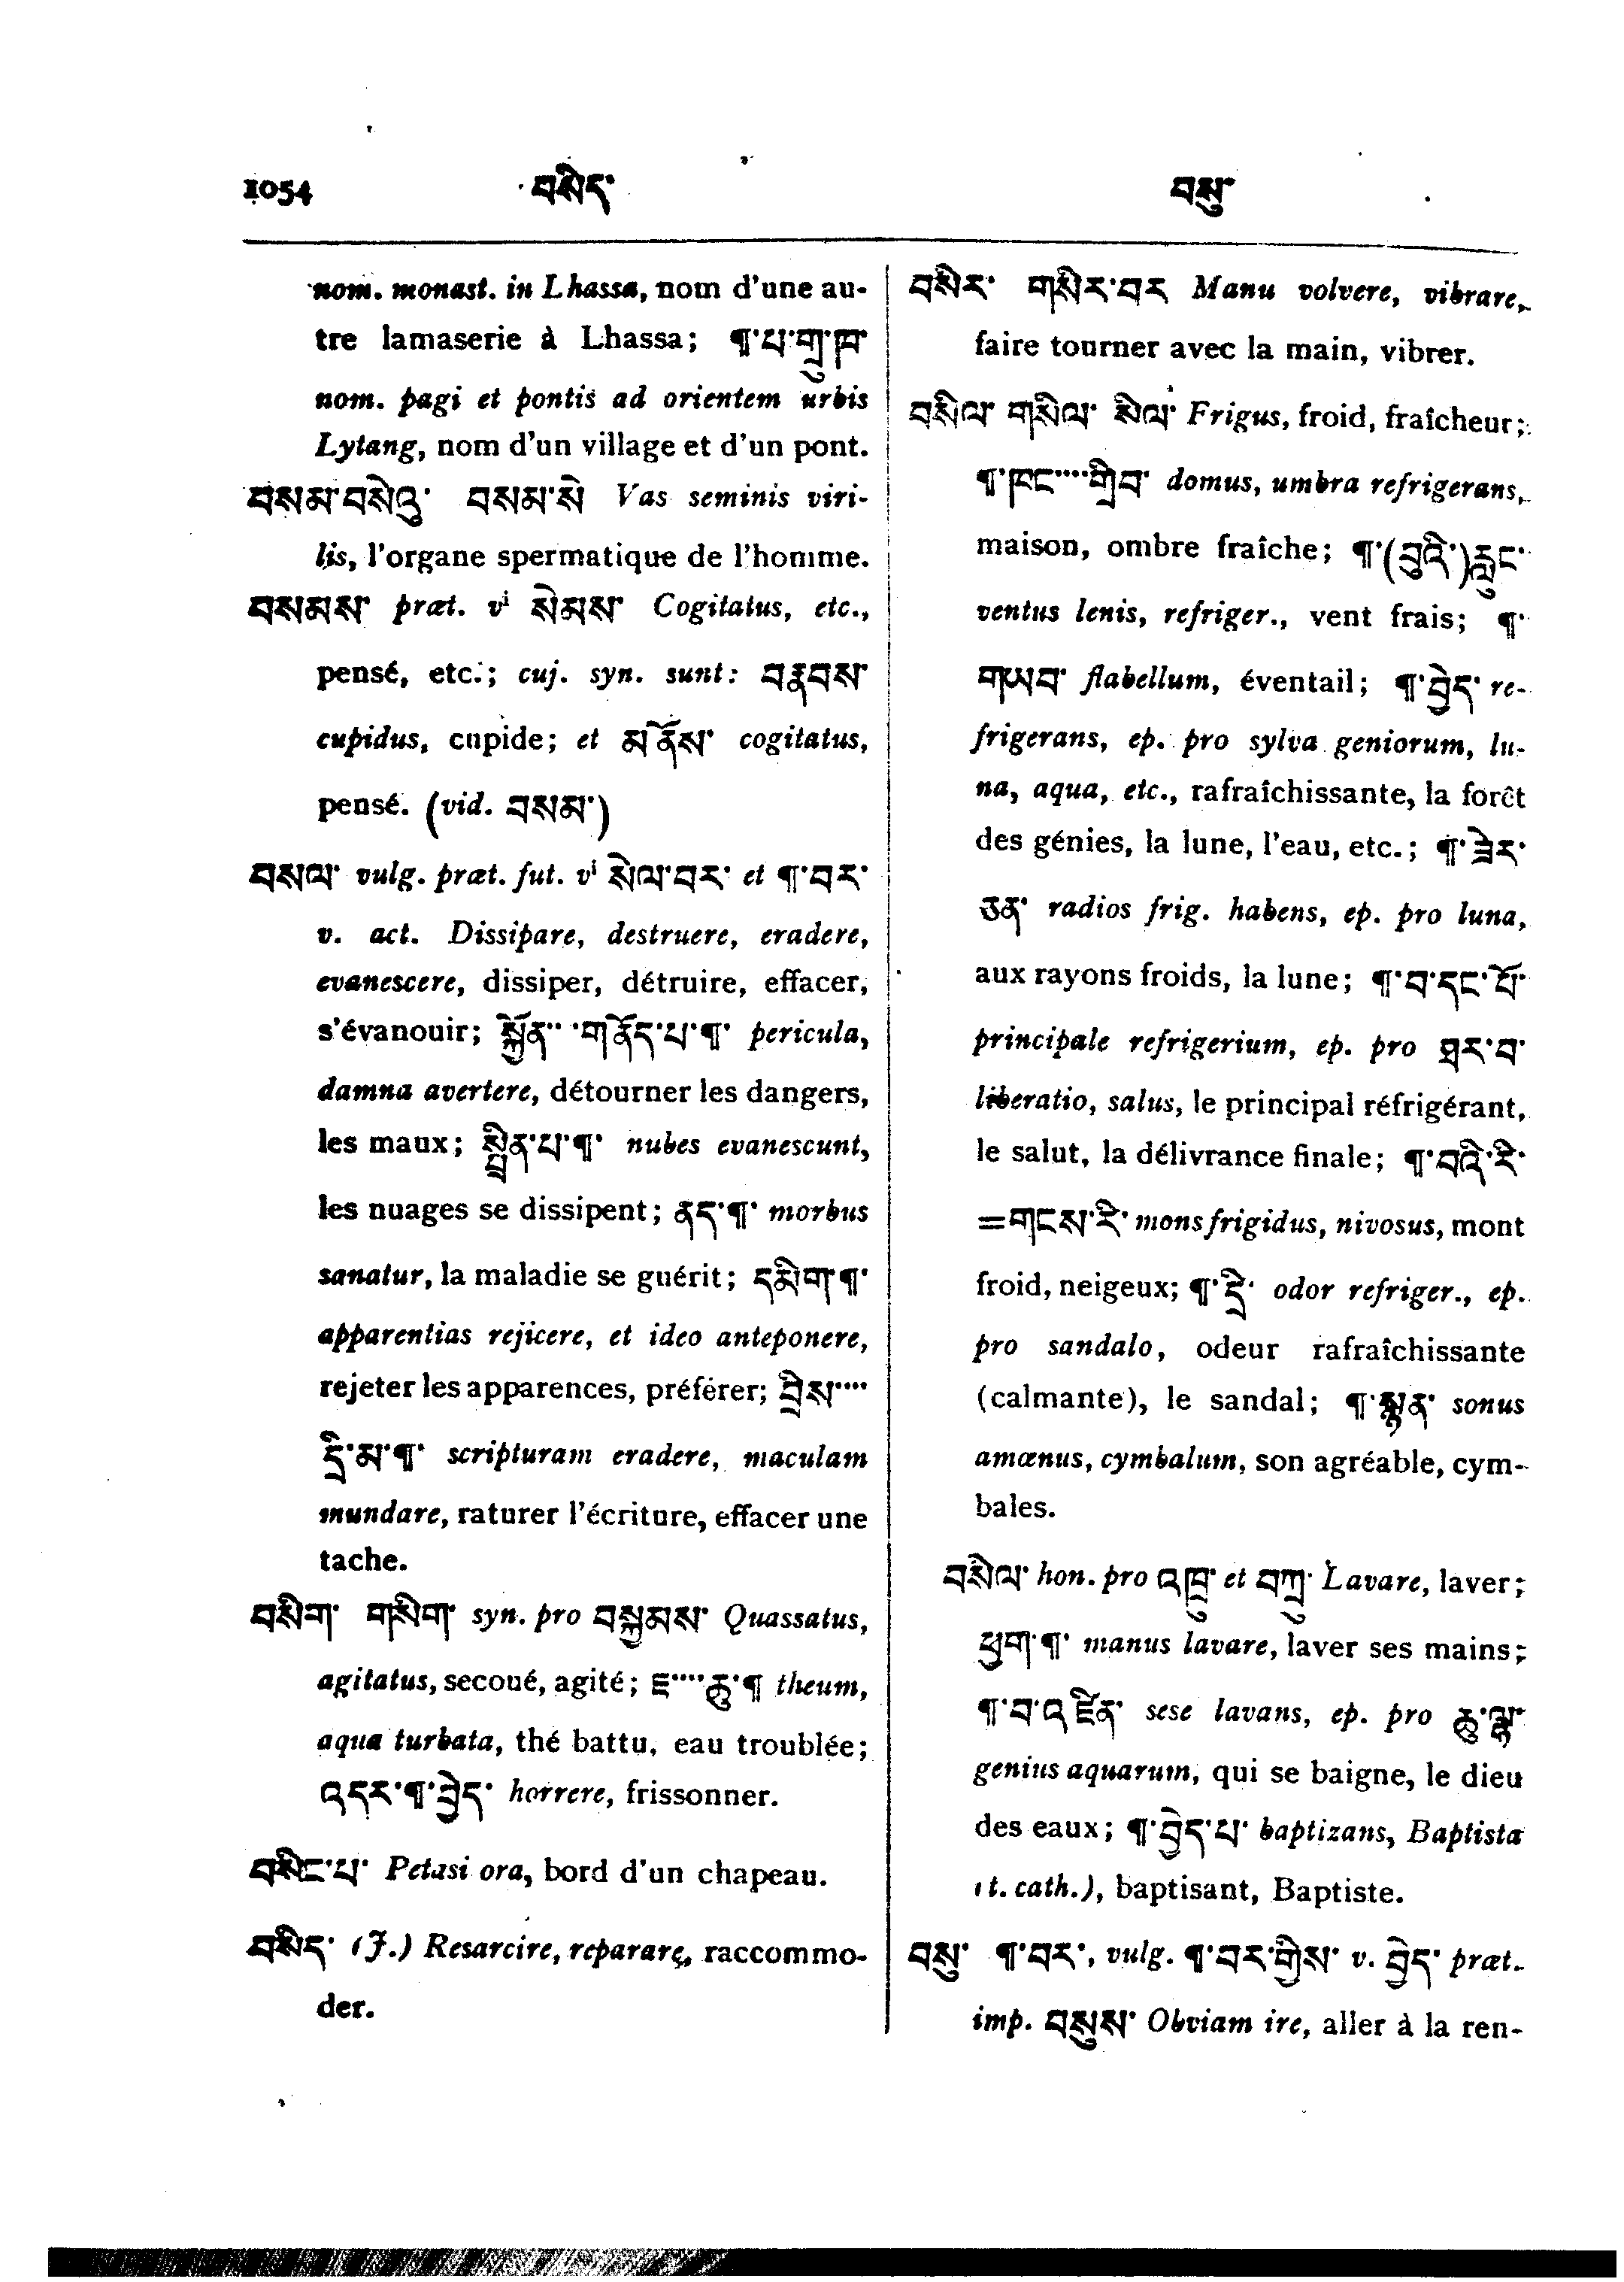 1054 བསིད་ བསུ་
nom. monast. in Lhassa, nom d'une au-
tre lamaserie à Lhassa; ¶་པ་གྲུ་ཁ་
nom. pagi et pontis ad orientem urbis
Lytang, nom d'un village et d'un pont.
བསམ་བསེའུ་ བསམ་སེ Vas seminis viri-
lis, l'organe spermatique de l'homme.
བསམས་ præt. vi སེམས་ Cogitatus, etc.,
pensé, etc.; cuj. syn. sunt: བརྣབས་
cupidus, cupide; et མནོས་ cogitatus,
pensé. (vid. བསམ་)
བསལ་ vulg. præt. fut. vi སེལ་བར་ et ¶་བར་
v. act. Dissipare, destruere, eradere,
evanescere, dissiper, détruire, effacer,
s'évanouir; སྐྱོན་་་་གནོད་པ་¶་ pericula,
damna avertere, détourner les dangers,
les maux; སྤྲིན་པ་¶་ nubes evanescunt,
les nuages se dissipent; ནད་¶་ morbus
sanatur, la maladie se guérit; དམིག་¶་
apparentias rejicere, et ideo anteponere,
rejeter les apparences, préférer; བྲིས་་་་
དྲི་མ་¶་ scripturam eradere, maculam
mundare, raturer l'écriture, effacer une
tache.
བསིག་ གསིག་ syn. pro བསྐྱམས་ Quassatus,
agitatus, secoué, agité; ཇ་་་་ཆུ་¶ theum,
aqua turbata, thé battu, eau troublée;
འདར་¶་བྱེད་ horrere, frissonner.
བསིང་པ་ Petasi ora, bord d'un chapeau.
བསིད་ (J.) Resarcire, reparare, raccommo-
der.
བསིར་ གསིར་བར Manu volvere, vibrare,
faire tourner avec la main, vibrer.
བསིལ་ གསིལ་ སིལ་ Frigus, froid, fraîcheur;
¶་ཁང་་་་གྲིབ་ domus, umbra refrigerans,
maison, ombre fraîche; ¶་(བུའི་)རླུང་
ventus lenis, refriger., vent frais; ¶་
གཡབ་ flabellum, éventail; ¶་བྱེད་ re-
frigerans, ep. pro sylva geniorum, lu-
na, aqua, etc., rafraîchissante, la forêt
des génies, la lune, l'eau, etc.; ¶་ཟེར་
ཅན་ radios frig. habens, ep. pro luna,
aux rayons froids, la lune; ¶་བ་དང་པོ་
principale refrigerium, ep. pro ཐར་བ་
liberatio, salus, le principal réfrigérant,
le salut, la délivrance finale; ¶་བའི་རི་
=གངས་རི་ mons frigidus, nivosus, mont
froid, neigeux; ¶་དྲི་ odor refriger., ep.
pro sandalo, odeur rafraîchissante
(calmante), le sandal; ¶་སྙན་ sonus
amœnus, cymbalum, son agréable, cym-
bales.
བསིལ་ hon. pro འཁྲུ་ et བཀྲུ་ Lavare, laver;
ཕྱག་¶་ manus lavare, laver ses mains;
¶་བ་འཛིན་ sese lavans, ep. pro ཆུ་ལྷ་
genius aquarum, qui se baigne, le dieu
des eaux; ¶་བྱེད་པ་ baptizans, Baptista
(t. cath.), baptisant, Baptiste.
བསུ་ ¶་བར་, vulg. ¶་བར་གྱིས་ v. བྱེད་ præt.
imp. བསུས་ Obviam ire, aller à la ren-